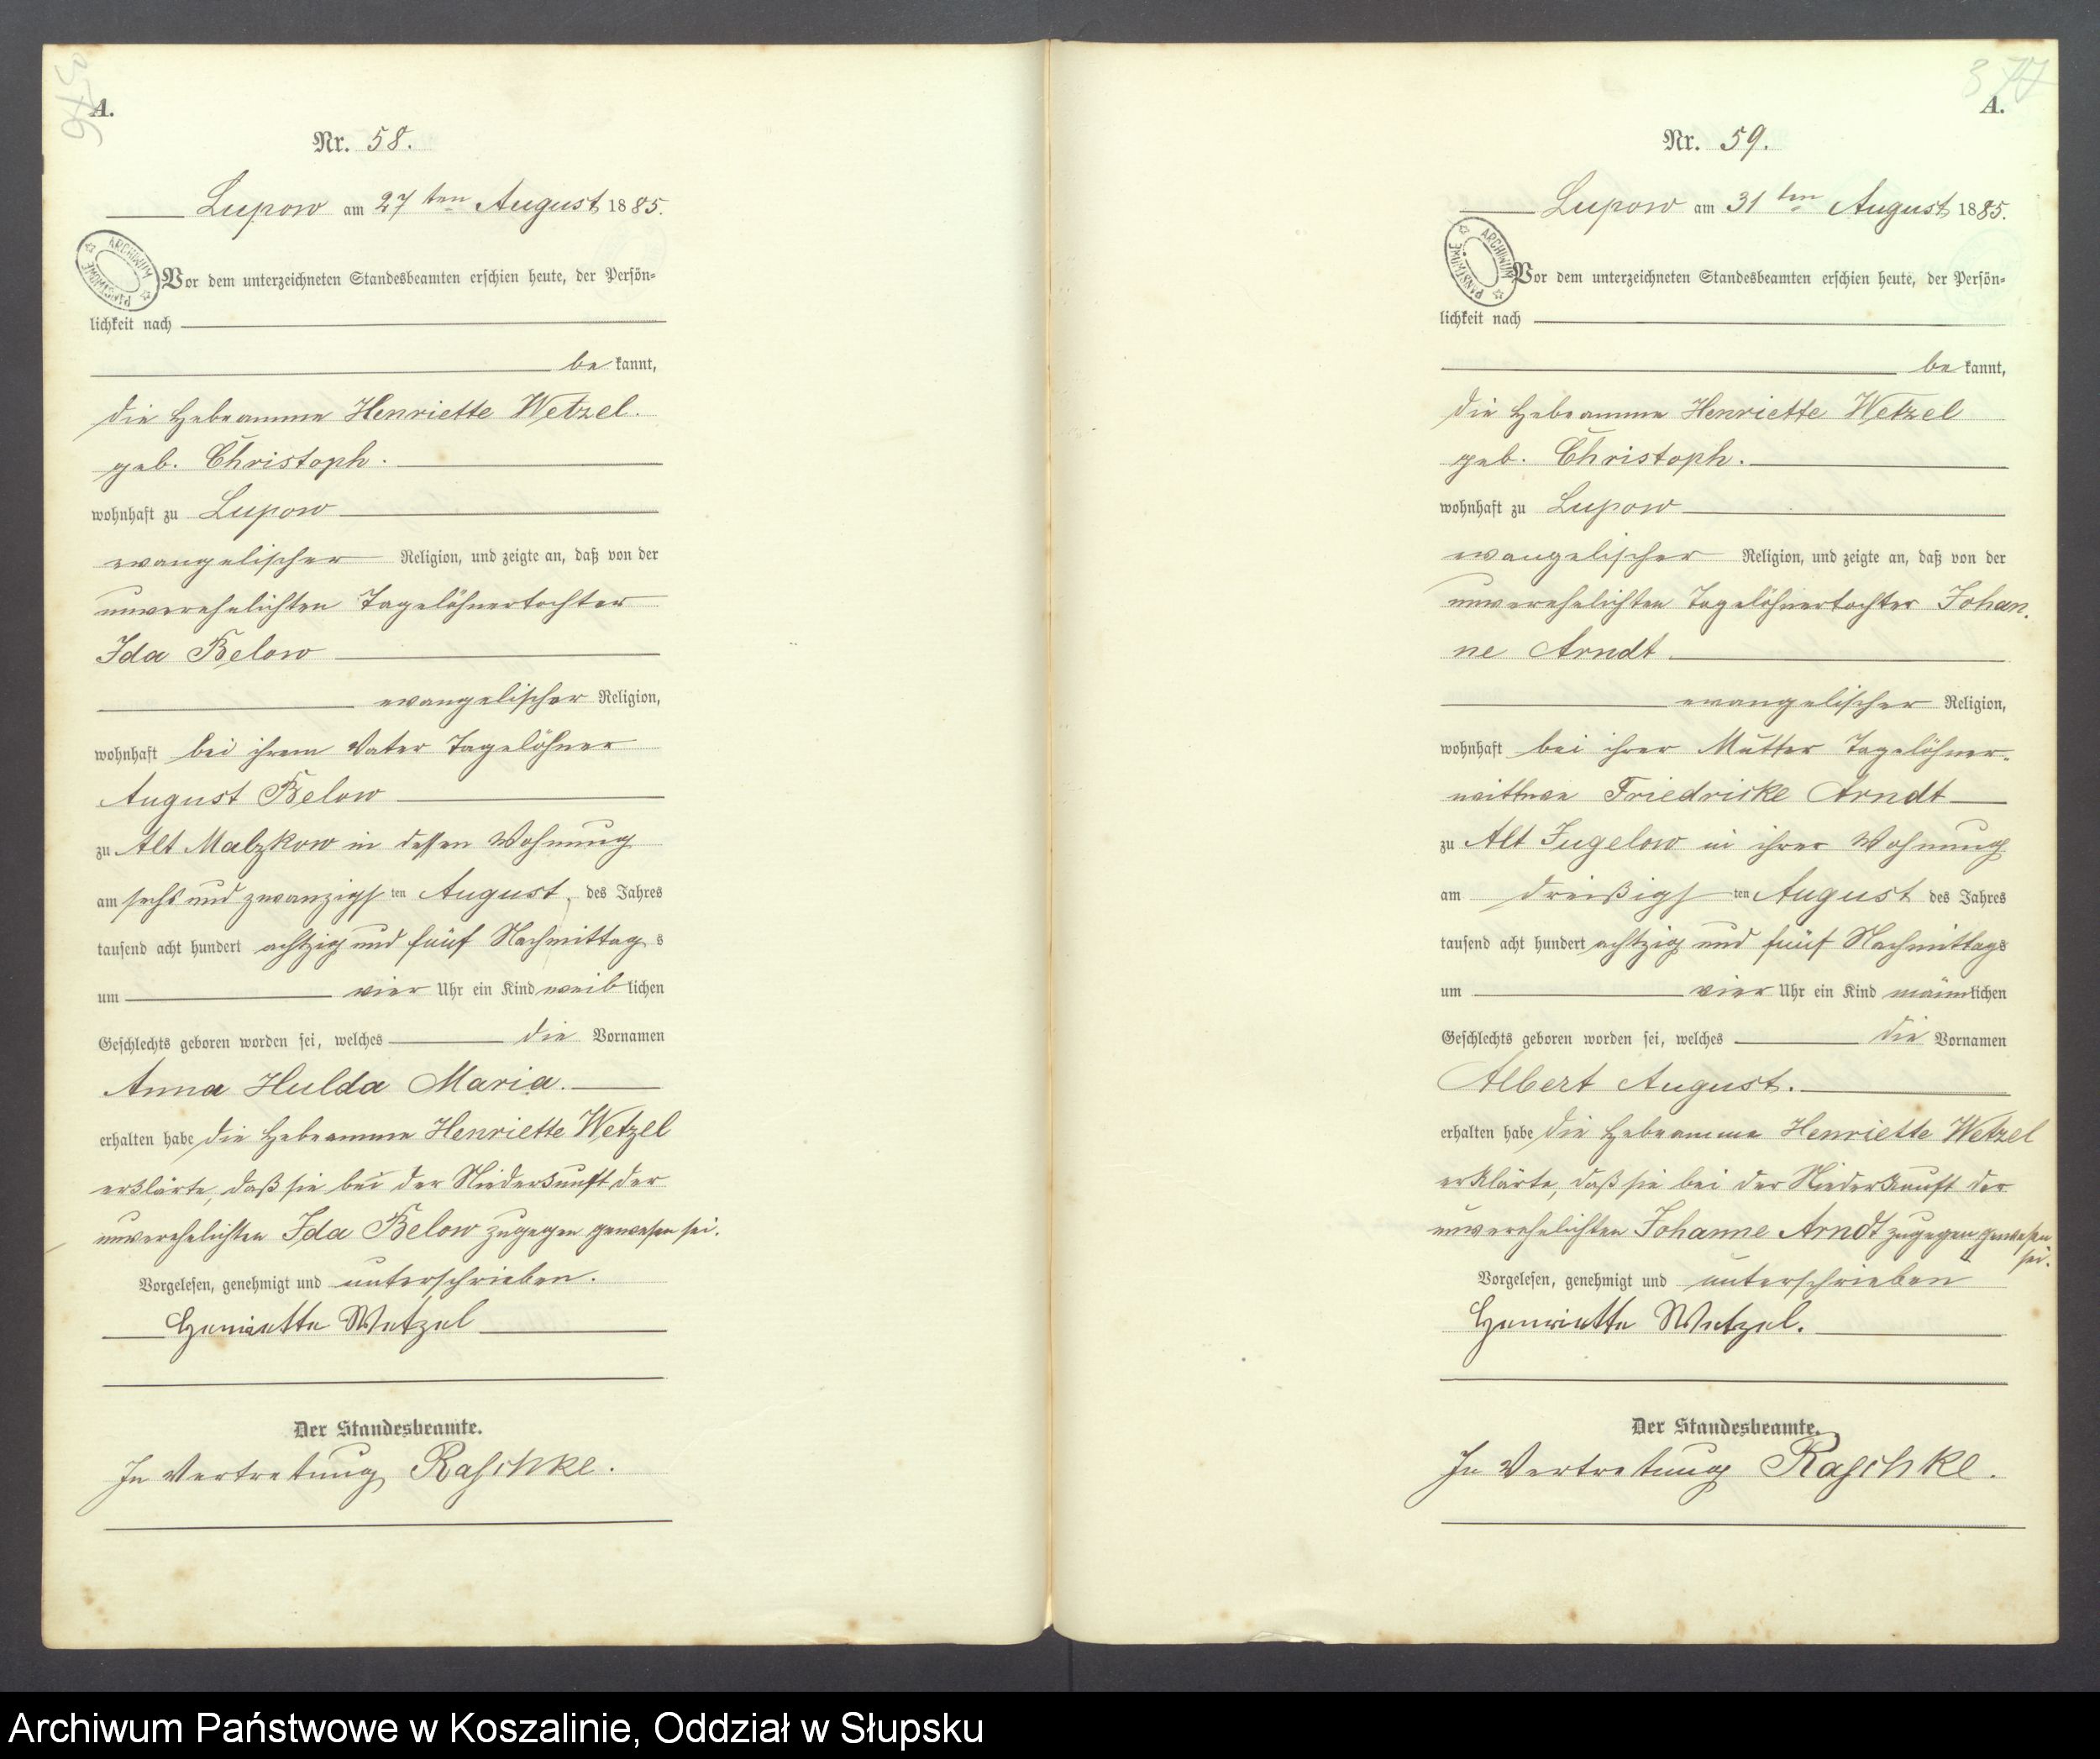 376
A.
Nr. 58.
Lupow am 27ten August 1885.
ARCHIWUM PAŃSTWOWE
Vor dem unterzeichneten Standesbeamten erschien heute, der Persön-
lichkeit nach
be kannt,
die Hebeamme Henriette Wetzel.
geb. Christoph.
wohnhaft zu Lupow
evangelischer Religion, und zeigte an, daß von der
unverehelichten Tagelöhnertochter
Ida Below
evangelischer Religion,
wohnhaft bei ihrem Vater Tagelöhner
August Below
zu Alt Malzkow in dessen Wohnung
am sechs und zwanzigsten August, des Jahres
tausend acht hundert achtzig und fünf Nachmittags
um vier Uhr ein Kind weiblichen
Geschlechts geboren worden sei, welches die Vornamen
Anna Hulda Maria.
erhalten habe die Hebeamme Henriette Wetzel
erklärte, daß sie bei der Niederkunft der
unverehelichten Ida Below zugegen gewesen sei.
Vorgelesen, genehmigt und unterschrieben.
Henriette Wetzel
Der Standesbeamte.
In Vertretung Raschke.
377
A.
Nr. 59.
Lupow am 31ten August 1885.
ARCHIWUM PAŃSTWOWE
Vor dem unterzeichneten Standesbeamten erschien heute, der Persön-
lichkeit nach
be kannt,
die Hebeamme Henriette Wetzel
geb. Christoph.
wohnhaft zu Lupow
evangelischer Religion, und zeigte an, daß von der
unverehelichten Tagelöhnertochter Johan-
ne Arndt
evangelischer Religion,
wohnhaft bei ihrer Mutter Tagelöhner-
wittwe Friedricke Arndt
zu Alt Jugelow in ihrer Wohnung
am dreißigsten August des Jahres
tausend acht hundert achtzig und fünf Nachmittags
um vier Uhr ein Kind männlichen
Geschlechts geboren worden sei, welches die Vornamen
Albert August.
erhalten habe die Hebeamme Henriette Wetzel
erklärte, daß sie bei der Niederkunft der
unverehelichten Johanne Arndt zugegen gewesen
sei.
Vorgelesen, genehmigt und unterschrieben
Henriette Wetzel.
Der Standesbeamte.
In Vertretung Raschke.
Archiwum Państwowe w Koszalinie, Oddział w Słupsku